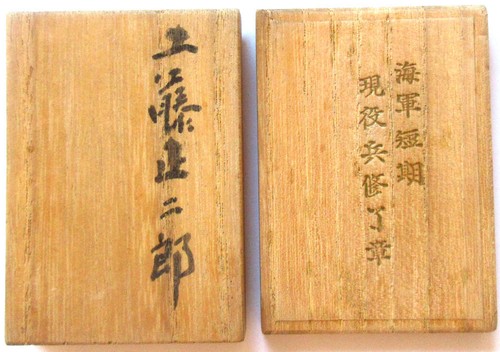 工藤正二郎
海軍短期
現役兵修了章